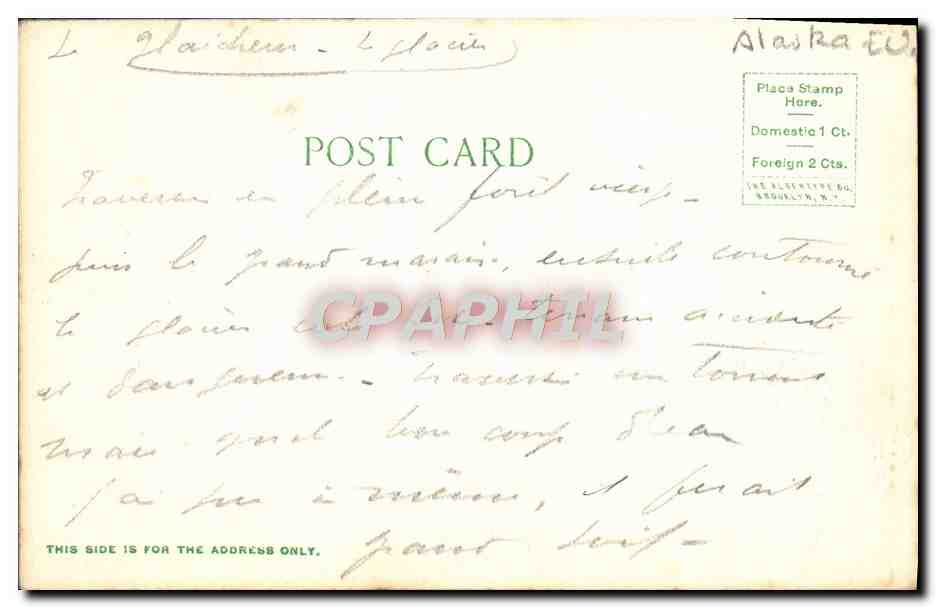 Le glacier
Alaska
Place Stamp
Here.
Domestic 1 Ct.
Foreign 2 Cts.
THE ALBERTYPE CO.
BROOKLYN, N.Y.
POST CARD
en plein forêt
puis le grand marais, ensuite contourné
le glacier
CPAPHIL
terrain accidenté
et dangereux - un torrent
mais quel bon coup d'eau
j'ai pu à même,
grand soif -
THIS SIDE IS FOR THE ADDRESS ONLY.